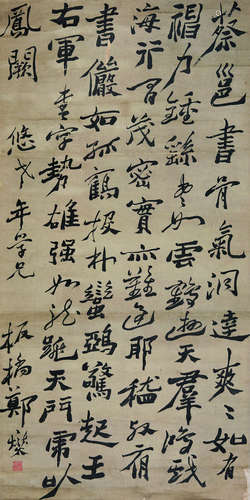 蔡邕書骨氣洞達爽〻如有
神力鍾繇書如雲鵠遊天群鴻戲
海行間茂密實亦難過耶嵇叔夜
書儼如孤鶴投林蠻鵶驚起王
右軍書字勢雄強如龍跳天門虎臥
鳳闕 悠老年學兄 板橋鄭燮